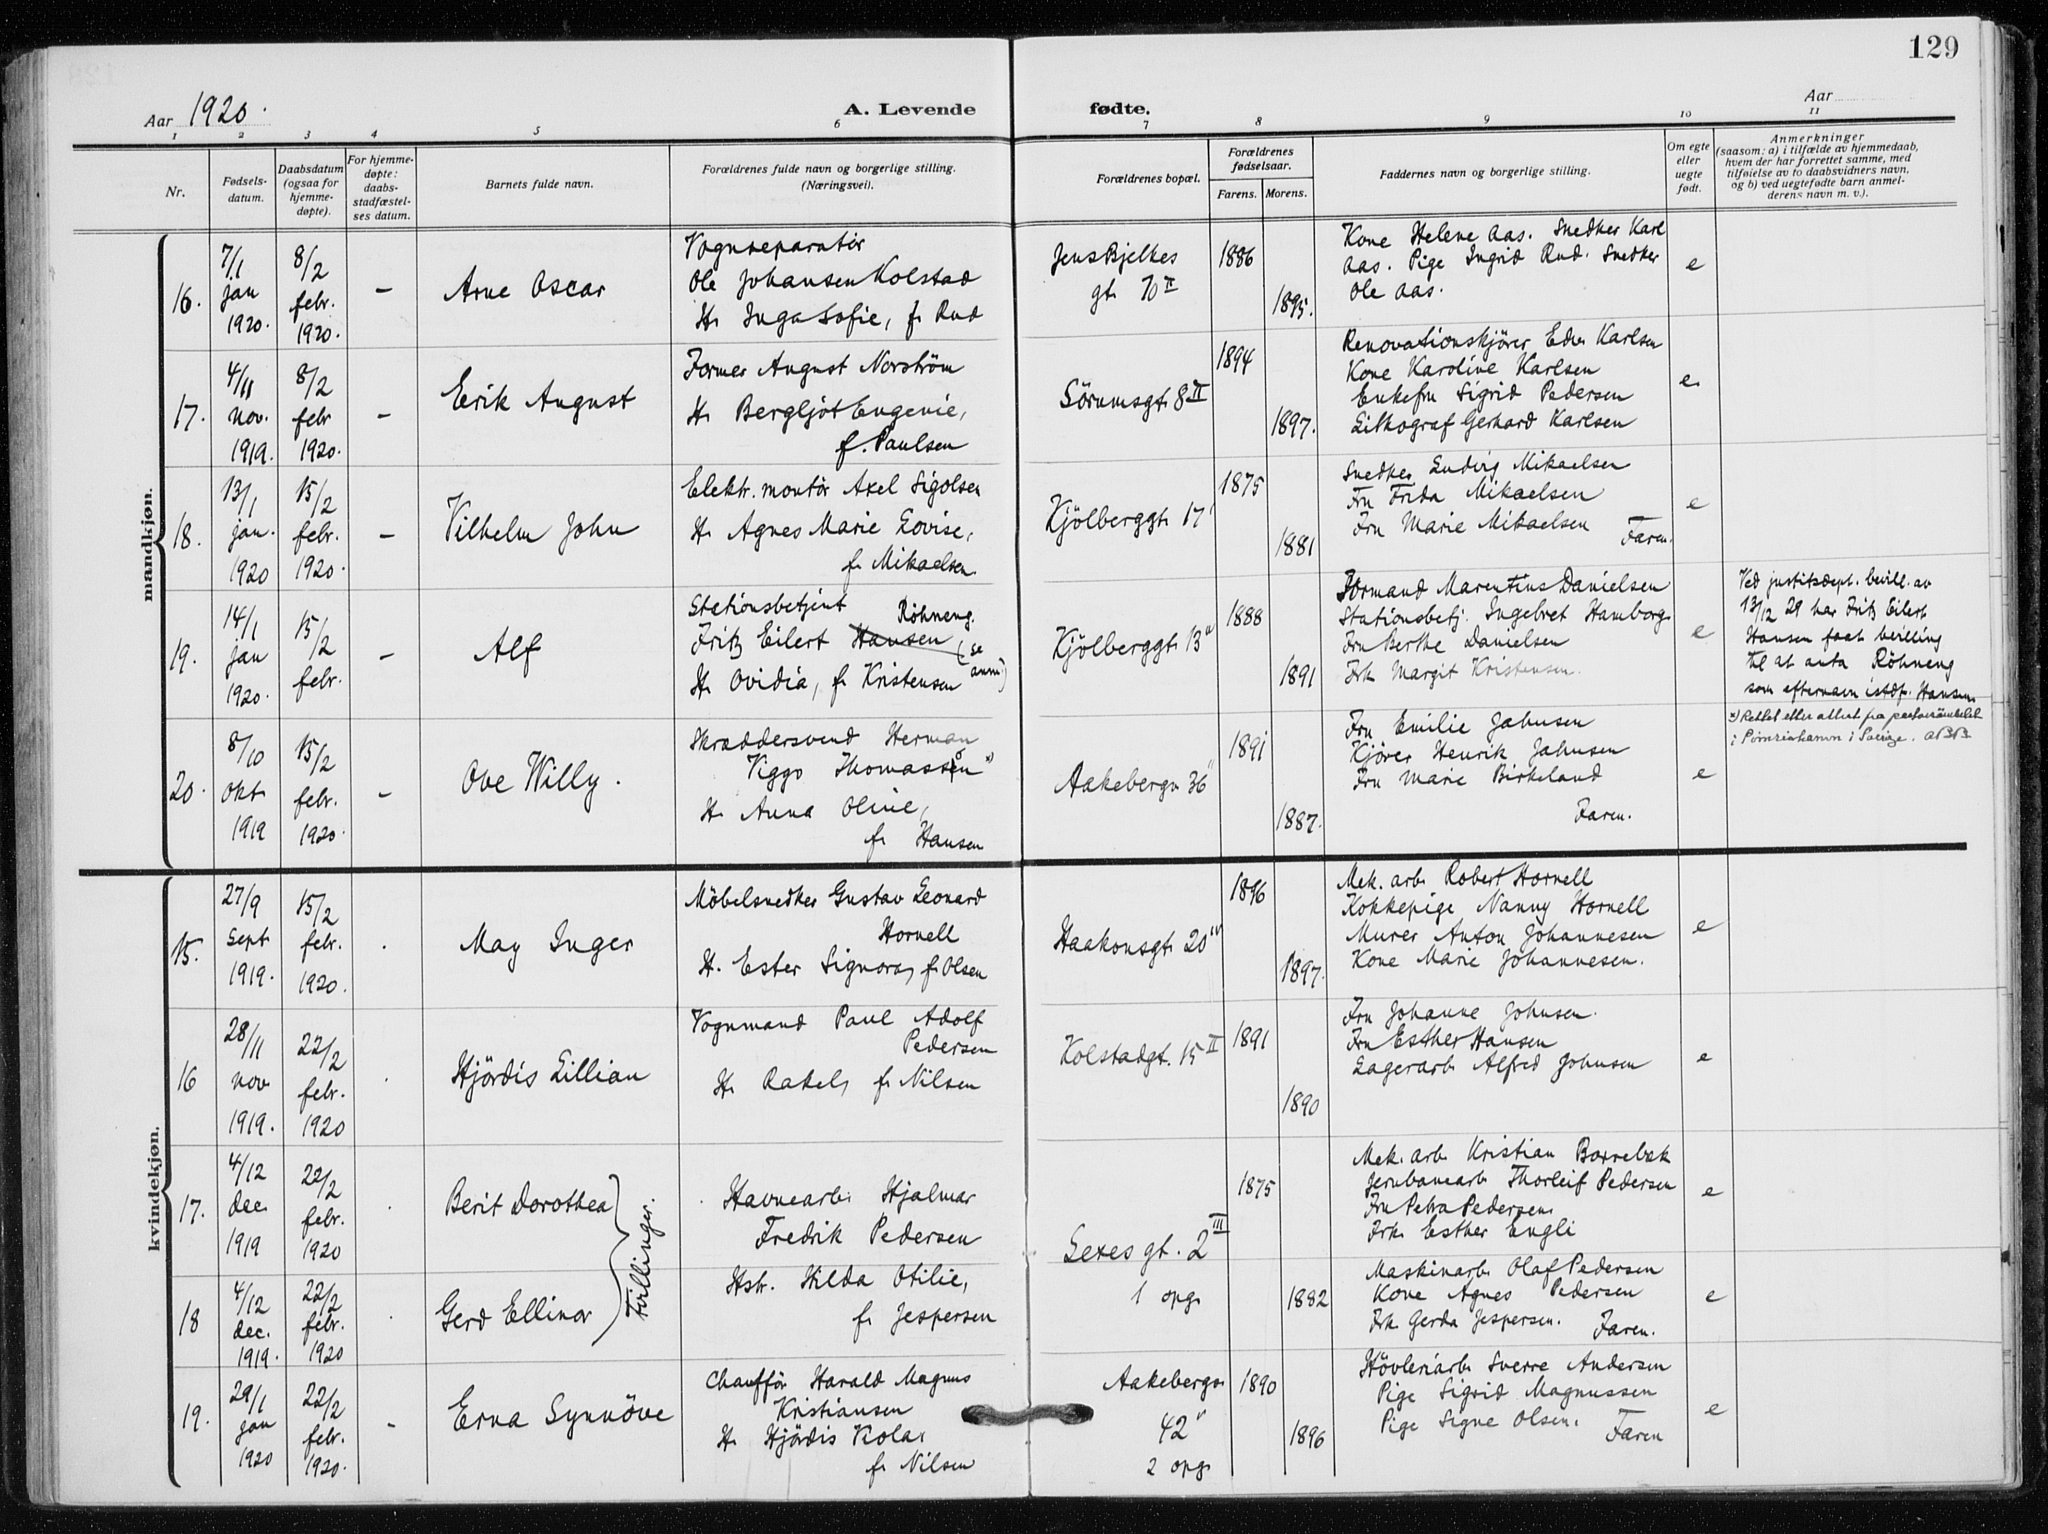 129
Aar 1920.
A. Levende fødte.
Aar
1 2 3 4 5 6 7 8 9 10 11
Nr.
Fødsels-
datum.
Daabsdatum
(ogsaa for
hjemme-
døpte).
For hjemme-
døpte:
daabs-
stadfæstel-
ses datum.
Barnets fulde navn.
Forældrenes fulde navn og borgerlige stilling.
(Næringsvei).
Forældrenes bopæl.
Forældrenes
fødselsaar.
Farens. Morens.
Faddernes navn og borgerlige stilling.
Om egte
eller
uegte
født.
Anmerkninger
(saasom: a) i tilfælde av hjemmedaab,
hvem der har forrettet samme, med
tilføielse av to daabsvidners navn,
og b) ved uegtefødte barn anmel-
derens navn m. v.).
mandkjøn.
16.
7/1
jan
1920.
8/2
febr.
1920.
–
Arne Oscar
Vognreparatör
Ole Johansen Kolstad
H. Inga Sofie, f. Rud
Jens Bjelkes
gt. 70 II
1886
1895.
Kone Helene Aas. Snedker Karl
Aas. Pige Ingrid Rud. Snedker
Ole Aas.
e
17.
4/11
nov.
1919.
8/2
febr
1920.
–
Erik August
Former August Norström
H. Bergljot Eugenie,
f. Paulsen
Sörumsgt. 8 II
1894
1897.
Renovationskjörer Edv. Karlsen
Kone Karoline Karlsen
Enkefru Sigrid Pedersen
Lithograf Gerhard Karlsen
e.
18.
13/1
jan.
1920
15/2
febr.
1920.
–
Vilhelm John
Elektr. montör Axel Sigolsen
H. Agnes Marie Lovise,
f. Mikaelsen.
Kjölberggt. 17
1875
1881
Snedker Ludvig Mikaelsen
Fru Frida Mikaelsen
Fru Marie Mikaelsen
Faren.
e
19.
14/1
jan
1920.
15/2
febr.
–
Alf
Stationsbetjent Röhneng.
Fritz Eilert Hansen (se
H. Ovidia, f. Kristensen anm.)
Kjölberggt. 13
1888
1891
Formand Marentius Danielsen
Stationsbetj. Ingebret Hamborg
Fru Berthe Danielsen
Frk. Margit Kristensen.
e
Ved justitsdept. bevill. av
13/12 29 har Fritz Eilert
Hansen faat bevilling
til at anta Röhneng
som efternavn istdf. Hansen
20.
8/10
okt.
1919
15/2
febr.
1920.
–
Ove Willy.
Skræddersvend Herman
Viggo Thomassen x)
H. Anna Oline,
f. Hansen
Aakebergv. 36
1891
1887.
Fru Emilie Jahnsen
Kjörer Henrik Jahnsen
Fru Marie Birkeland
Faren.
e
x) Rettet efter attest fra
i Sverige.
kvindekjøn.
15.
27/9
sept
1919.
15/2
febr.
1920.
.
May Inger
Möbelsnedker Gustav Leonard
Hornell
H. Ester Signora, f. Olsen
Haakonsgt. 20
1896
1897.
Mek. arb. Robert Hornell
Kokkepige Nanny Hornell
Murer Anton Johannesen
Kone Marie Johannesen.
e
16
28/11
nov
1919.
22/2
febr.
1920
.
Hjördis Lillian
Vognmand Paul Adolf
Pedersen
H. Rakel, f. Nilsen
Kolstadgt. 15 II
1891
1890
Fru Johanne Johnsen.
Fru Esther Hansen
Lagerarb. Alfred Johnsen
e
17.
4/12
dec.
1919
22/2
febr.
1920
.
Berit Dorothea
Havnearb. Hjalmar
Fredrik Pedersen
1875
Mek. arb. Kristian Borrebæk
Jernbanearb. Thorleif Pedersen
Fru Petra Pedersen.
Frk. Esther Engli
e
Tvillinger.
Lexes gt. 2 III
1 opg.
18
4/12
dec.
1919.
22/2
febr.
1920
.
Gerd Ellinor
Hstr. Hilda Otilie,
f. Jespersen
1882
Maskinarb. Olaf Pedersen
Kone Agnes Pedersen
Frk. Gerda Jespersen. Faren.
e
19.
29/1
jan
1920
22/2
febr.
1920.
–
Erna Synnöve
Chaufför Harald Magnus
Kristiansen
H. Hjördis Viola,
f. Nilsen
Aakebergv.
42
2 opg.
1890
1896
Hövleriarb. Sverre Andersen
Pige Sigrid Magnussen
Pige Signe Olsen.
Faren
e